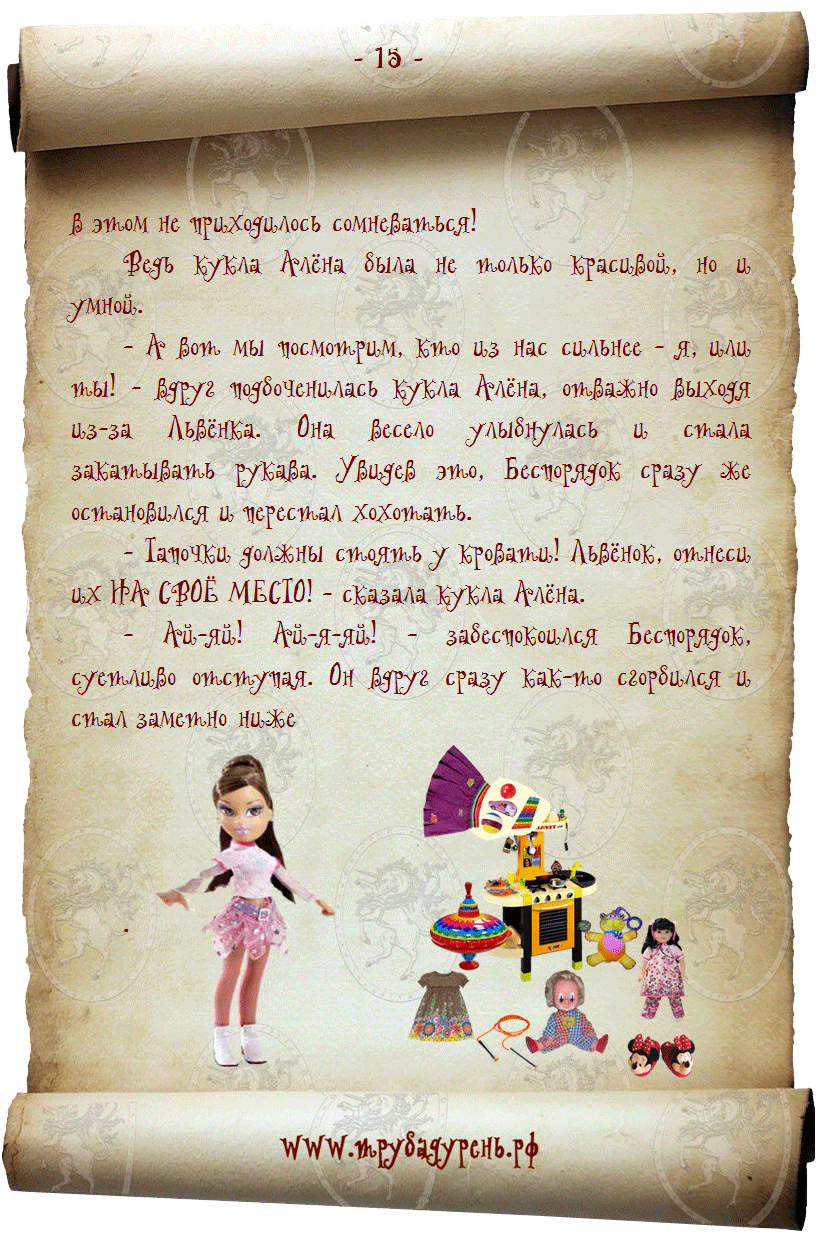 - 15 -
в этом не приходилось сомневаться!
Ведь кукла Алёна была не только красивой, но и
умной.
- А вот мы посмотрим, кто из нас сильнее - я, или
ты! - вдруг подбоченилась кукла Алёна, отважно выходя
из-за Львёнка. Она весело улыбнулась и стала
закатывать рукава. Увидев это, Беспорядок сразу же
остановился и перестал хохотать.
- Тапочки должны стоять у кровати! Львёнок, отнеси
их НА СВОЁ МЕСТО! - сказала кукла Алёна.
- Ай-яй! Ай-я-яй! - забеспокоился Беспорядок,
суетливо отступая. Он вдруг сразу как-то сгорбился и
стал заметно ниже
www.трубадурень.рф